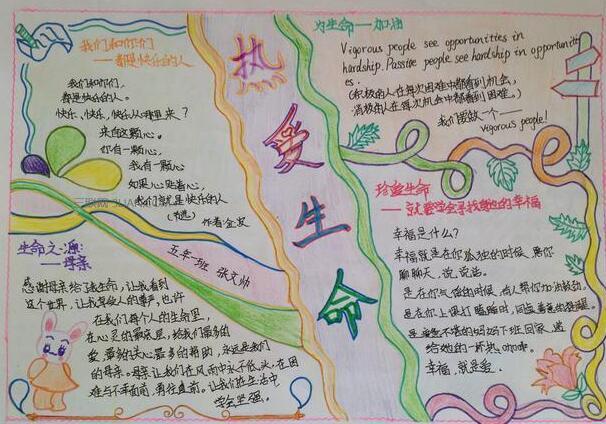 我们和你们
——都是快乐的人
我们和你们,
都是快乐的人。
快乐、快乐,快乐从哪里来?
来自这颗心。
你有一颗心,
我有一颗心
如果心连着心,
我们就是快乐的人
作者:金波
五年一班 张文帅
生命之源
——母亲
感谢母亲给了我生命,让我看到
这个世界,让我
在我们每个人的生命里,
在心灵的最底层,给我们最多的
爱,最多的关心最多的帮助,永远是我们
的母亲。母亲让我们在风雨中永不低头,在困
难与不幸面前,勇往直前。让我们在生活中
学会坚强。
热爱生命
为生命——加油
Vigorous people see opportunities in
hardship. Passive people see hardship in opportunities
es.
(积极的人在每次困难中都看到机会,
消极的人在每次机会中都看到困难。)
我们要做一个——
vigorous people!
珍爱生命
——就要学会寻找身边的幸福
幸福是什么?
幸福就是在你孤独的时候,陪你
聊聊天,说说话。
是在你气馁的时候,有人帮你加油鼓劲。
是在你上课打瞌睡时,同学善意的提醒。
是下班回家,递
给她的一杯热
幸福,就是爱。